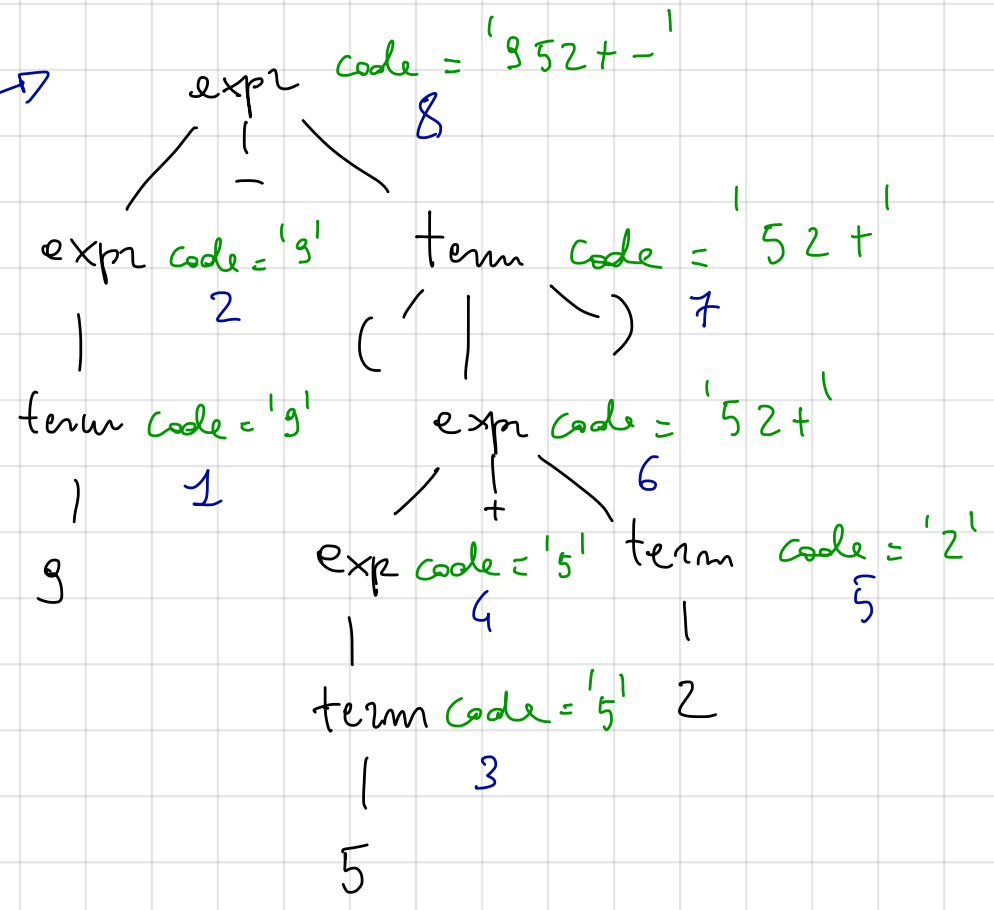 expr code = '952+-'
8
-
expr code = '9' term code = '52+'
2 7
( )
term code = '9' expr code = '52+'
1 6
+
9 exp code = '5' term code = '2'
4 5
term code = '5' 2
3
5